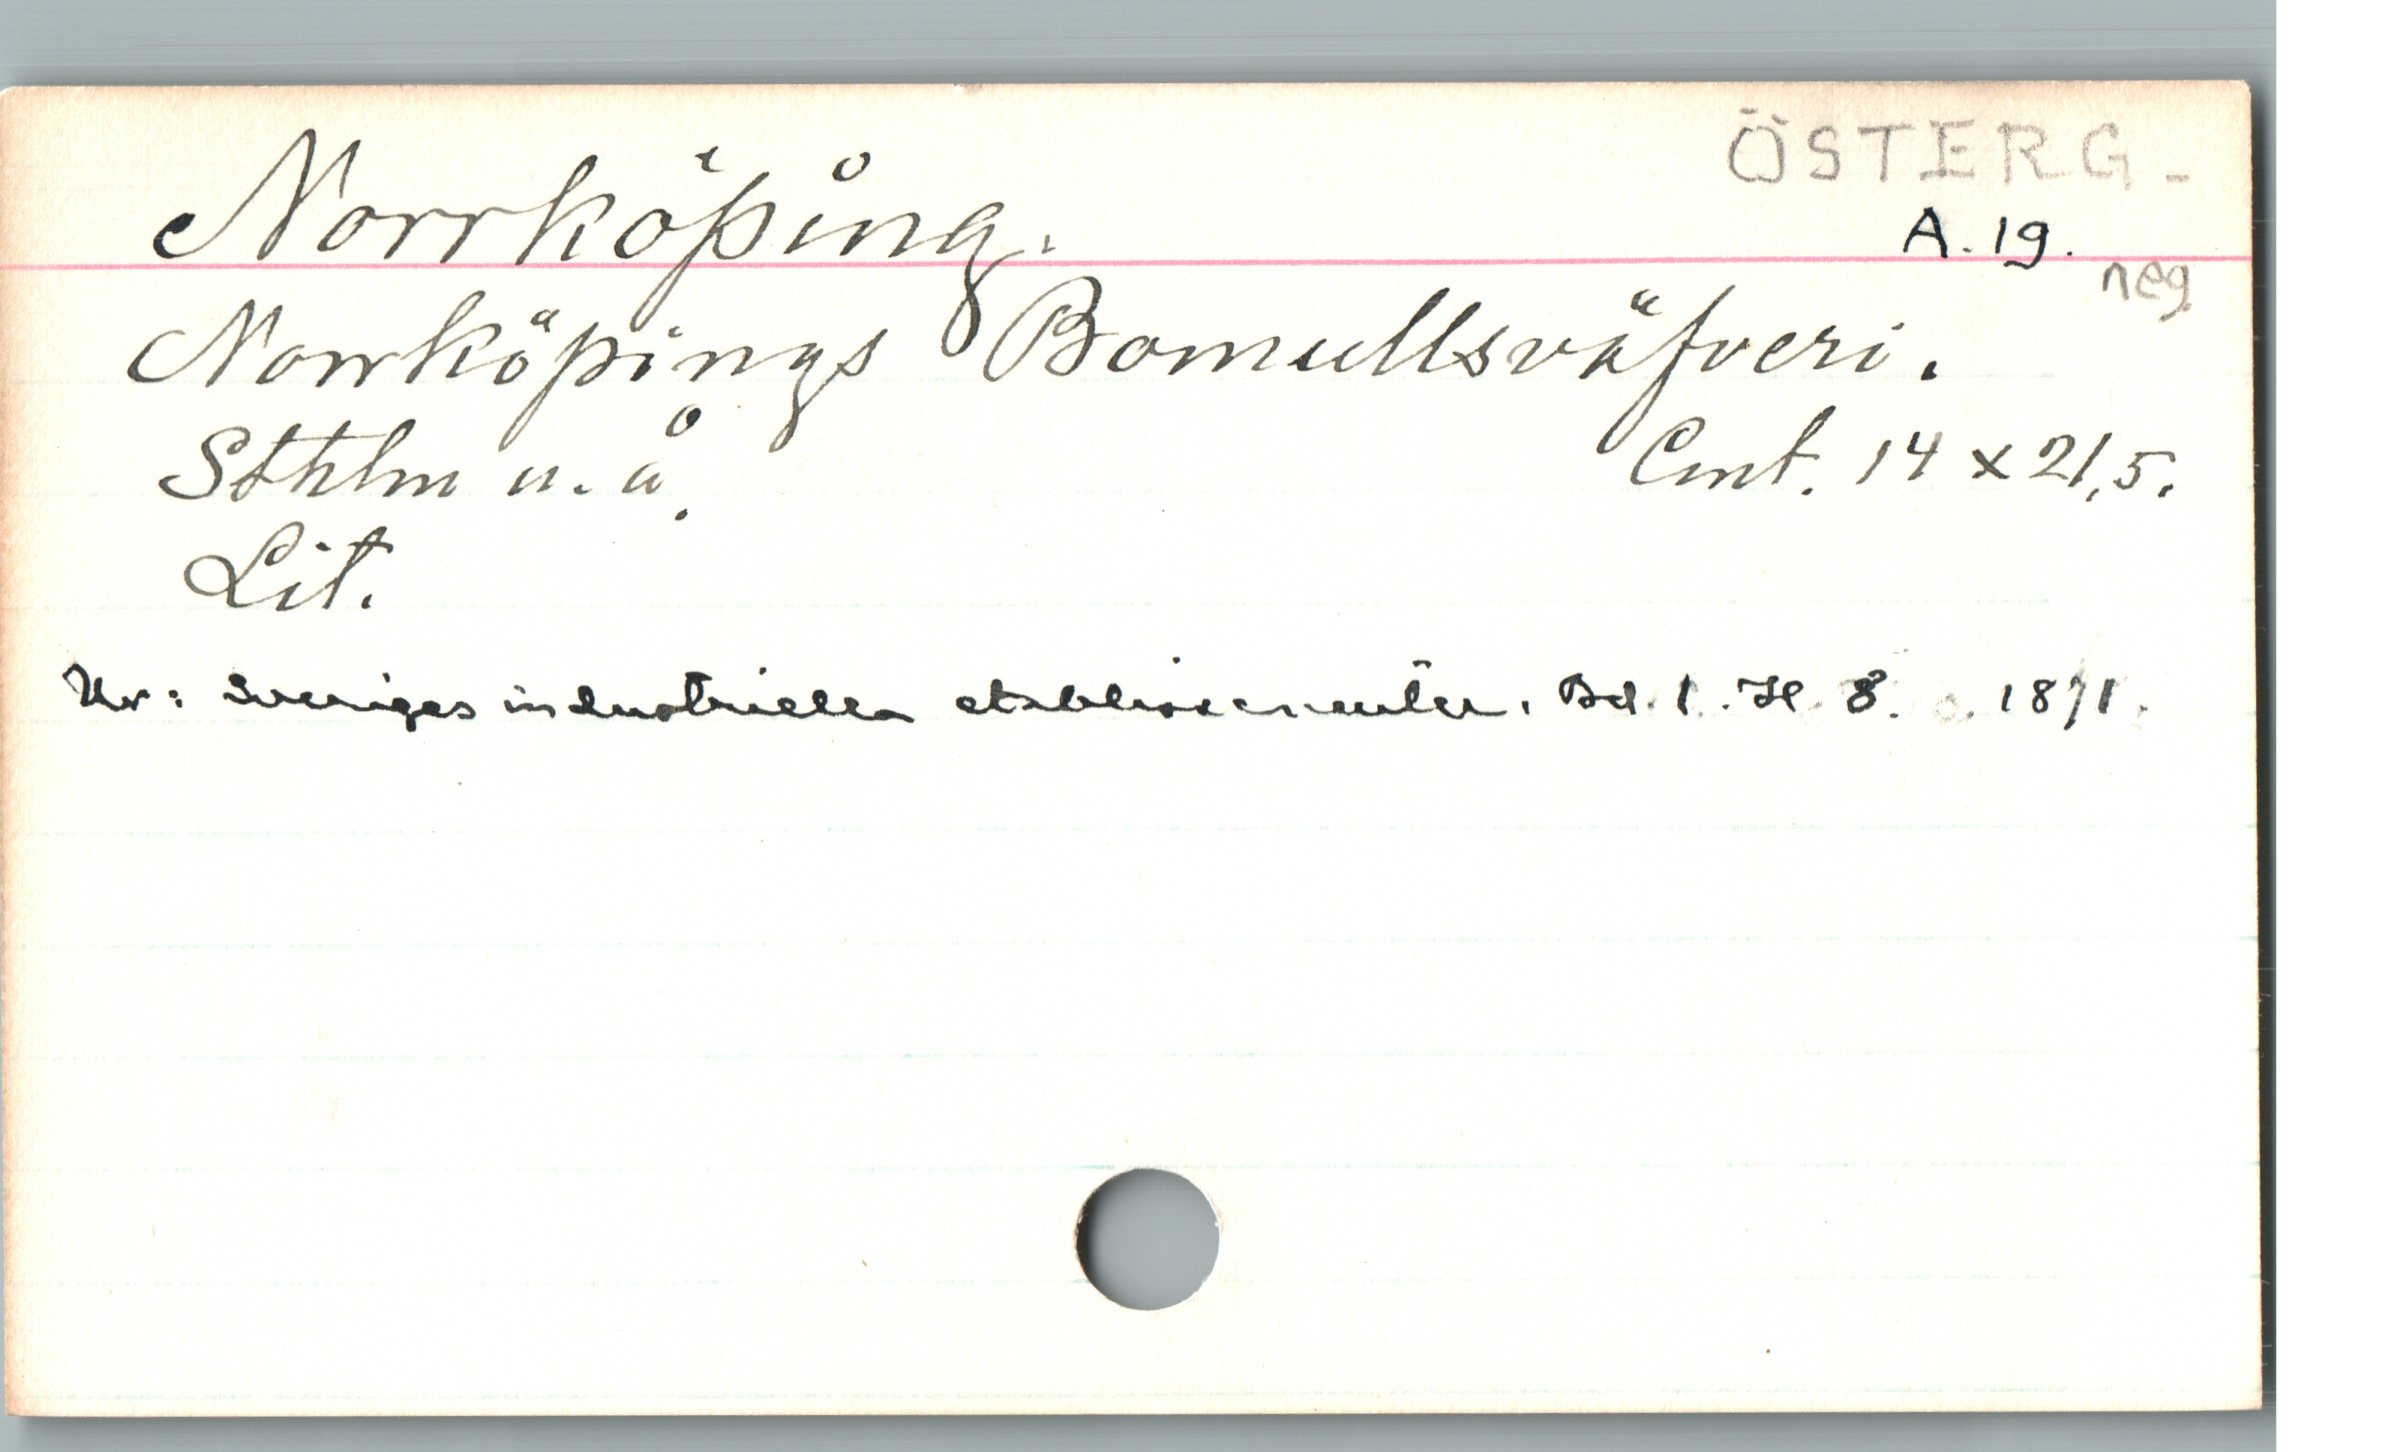 ÖSTERG-
Norrköping.
A. 19.
neg
Norrköpings Bomullsväfveri.
Sthlm u. å.
Cmt. 14 x 21,5.
Lit.
Ur: Sveriges industriella etablissementer. Bd. 1. H. 8. 1871.